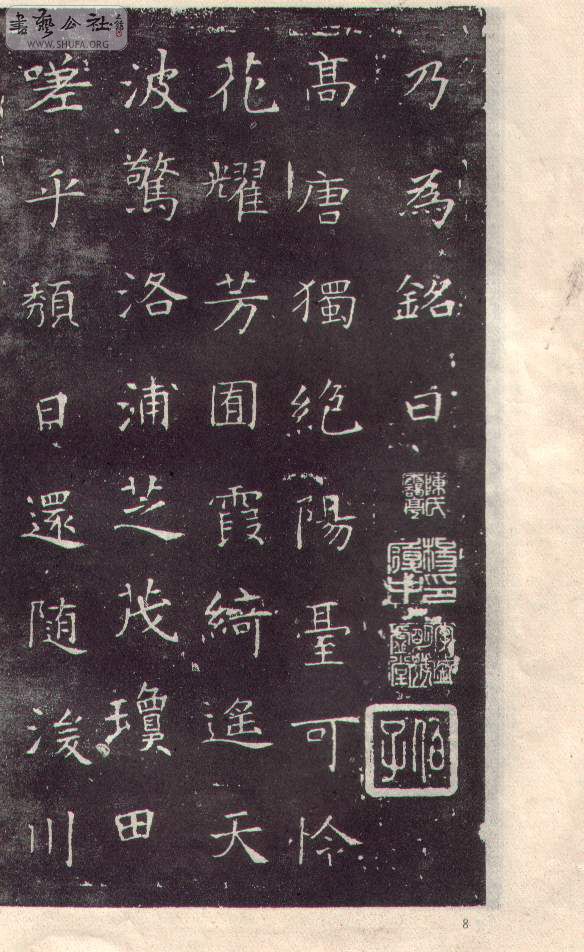 書藝公社
WWW.SHUFA.ORG
乃為銘曰
髙唐獨絶陽臺可怜
花耀芳囿霞綺遥天
波驚洛浦芝茂瓊田
嗟乎頹日還随浚川
8